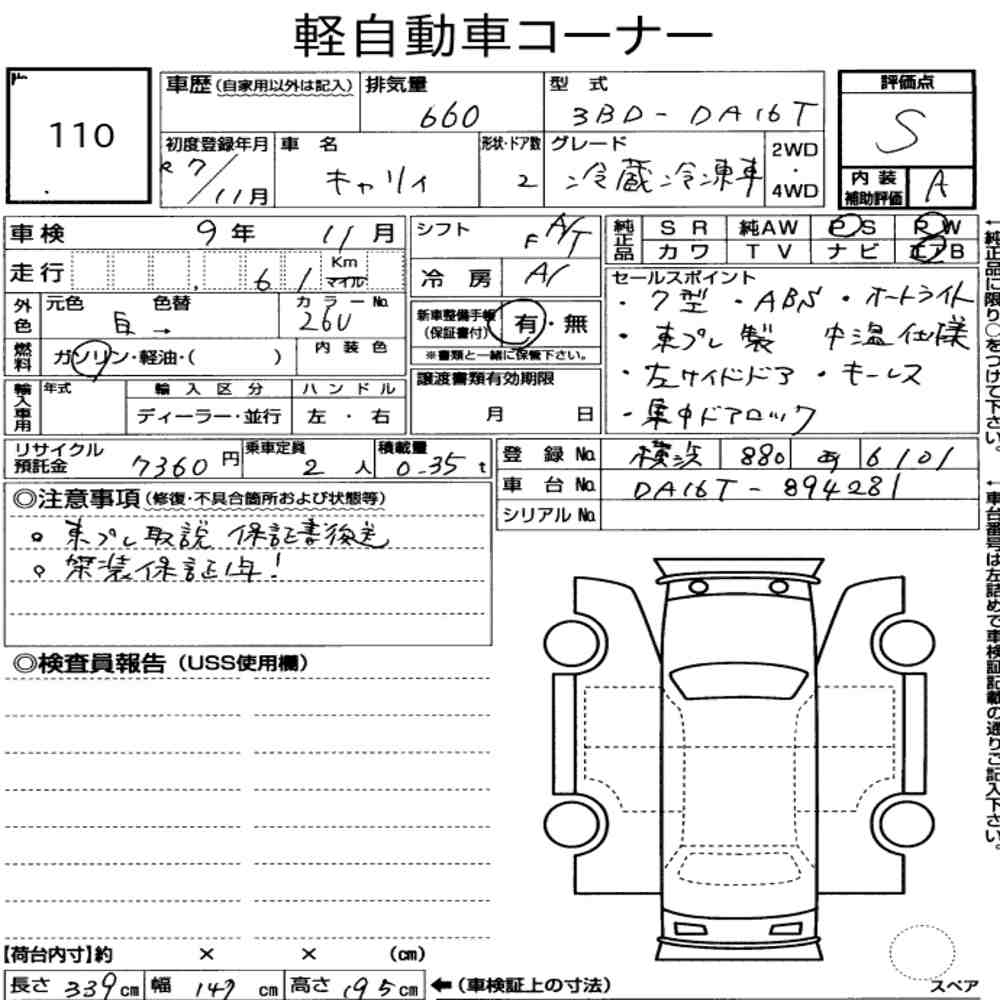 軽自動車コーナー
110
車歴(自家用以外は記入) 排気量 660 型式 3BD-DA16T
評価点 S
初度登録年月 R7/11月 車名 キャリィ 形状・ドア数 2 グレード 冷蔵冷凍車 2WD・4WD
内装補助評価 A
車検 9年 11月
走行 61 Km マイル
外色 元色 白→ 色替 カラーNo. 26U
燃料 ガソリン・軽油・( ) 内装色
輸入車用 年式 輸入区分 ディーラー・並行 ハンドル 左・右
シフト F A/T
冷房 A/
新車整備手帳(保証書付) 有・無
※書類と一緒に保管下さい。
譲渡書類有効期限
月 日
純正品 SR 純AW PS PW
カワ TV ナビ エアB
セールスポイント
・7型 ・ABS ・オートライト
・東プレ製 中温仕様
・左サイドドア ・キーレス
・集中ドアロック
リサイクル預託金 7360円 乗車定員 2人 積載量 0.35t
登録No. 横浜 880 あ 6101
車台No. DA16T-894281
シリアルNo.
◎注意事項(修復・不具合箇所および状態等)
○ 東プレ取説 保証書後送
○ 架装保証1年!
◎検査員報告(USS使用欄)
【荷台内寸】約 × × (cm)
長さ 339cm 幅 147cm 高さ 195cm ←(車検証上の寸法)
スペア
←純正品に限り○をつけて下さい。
←車台番号は左詰めで車検証記載の通りご記入下さい。